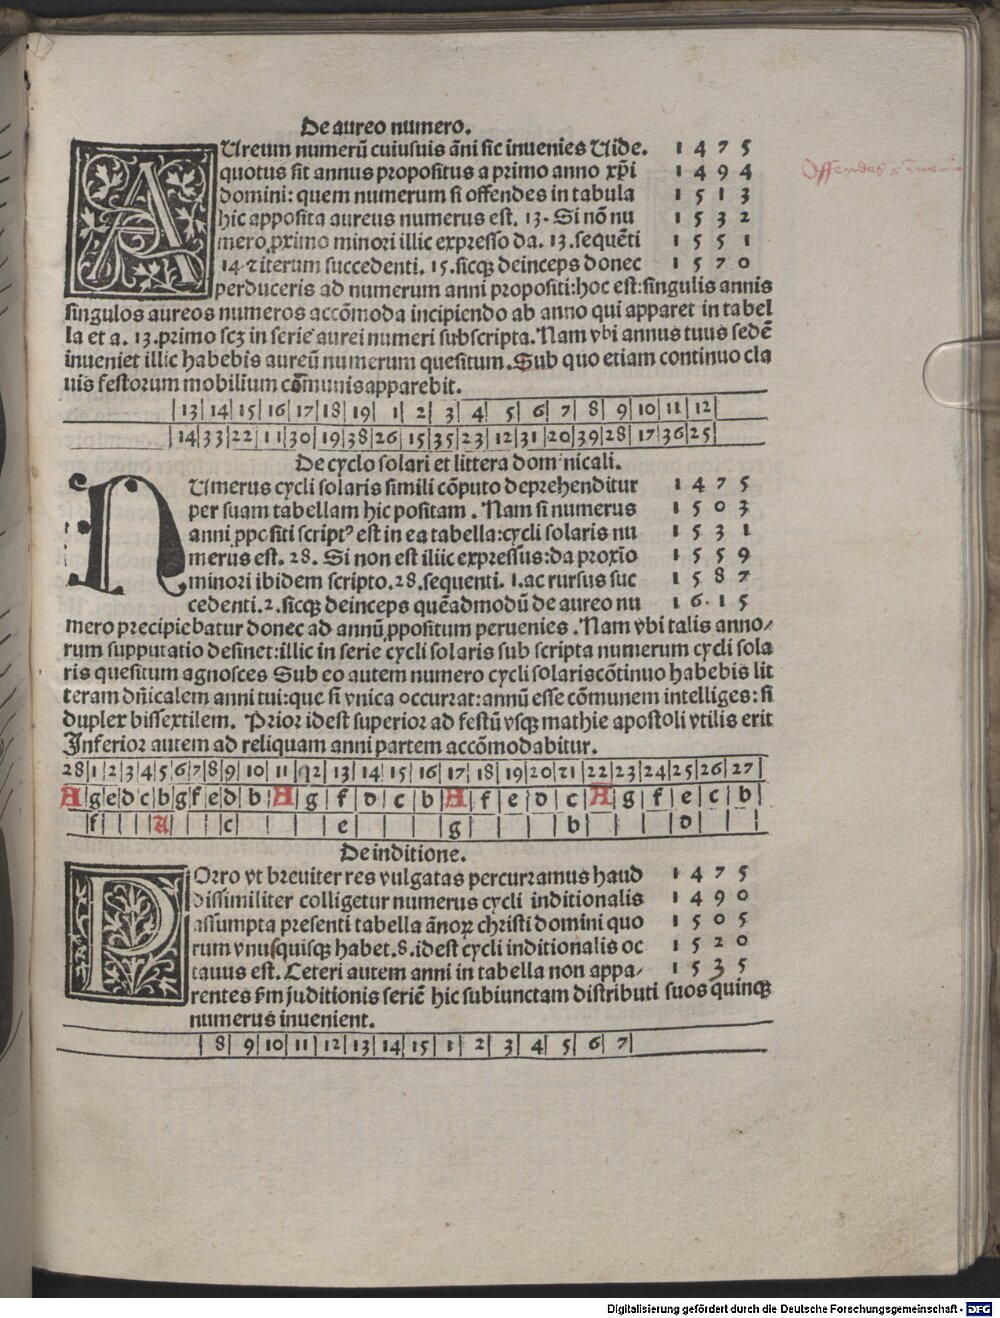 De aureo numero.
AUreum numerū cuiusuis āni sic inuenies Uide. 1 4 7 5
quotus sit annus propositus a primo anno xp̄i 1 4 9 4
domini: quem numerum si offendes in tabula 1 5 1 3
hic apposita aureus numerus est. 13. Si nō nu 1 5 3 2
mero ꝓximo minori illic expresso da. 13. sequēti 1 5 5 1
14 ⁊ iterum succedenti. 15. sicqꝫ deinceps donec 1 5 7 0
perduceris ad numerum anni propositi: hoc est: singulis annis
singulos aureos numeros accōmoda incipiendo ab anno qui apparet in tabel
la et a. 13. primo scꝫ in serie aurei numeri subscripta. Nam vbi annus tuus sedē
inueniet illic habebis aureū numerum quesitum. Sub quo etiam continuo cla
uis festorum mobilium cōmunis apparebit.
|13|14|15|16|17|18|19|1|2|3|4|5|6|7|8|9|10|11|12|
|14|33|22|11|30|19|38|26|15|35|23|12|31|20|39|28|17|36|25|
De cyclo solari et littera dominicali.
NUmerus cycli solaris simili cōputo deprehenditur 1 4 7 5
per suam tabellam hic positam. Nam si numerus 1 5 0 3
anni ꝓpositi scriptꝰ est in ea tabella: cycli solaris nu 1 5 3 1
merus est. 28. Si non est illic expressus: da proxīo 1 5 5 9
minori ibidem scripto. 28. sequenti. 1. ac rursus suc 1 5 8 7
cedenti. 2. sicqꝫ deinceps quēadmodū de aureo nu 1 6. 1 5
mero precipiebatur donec ad annū ꝓpositum peruenies. Nam vbi talis anno/
rum supputatio desinet: illic in serie cycli solaris sub scripta numerum cycli sola
ris quesitum agnosces Sub eo autem numero cycli solaris cōtinuo habebis lit
teram dn̄icalem anni tui: que si vnica occurrat: annū esse cōmunem intelliges: si
duplex bissextilem. Prior idest superior ad festū vsqꝫ mathie apostoli vtilis erit
Inferior autem ad reliquam anni partem accōmodabitur.
28|1|2|3|4|5|6|7|8|9|10|11|12|13|14|15|16|17|18|19|20|21|22|23|24|25|26|27|
A|g|e|d|c|b|g|f|e|d|b|A|g|f|d|c|b|A|f|e|d|c|A|g|f|e|c|b|
|f| | | |A| | | |c| | | |e| | | |g| | | |b| | | |d| |
De inditione.
POrro vt breuiter res vulgatas percurramus haud 1 4 7 5
dissimiliter colligetur numerus cycli inditionalis 1 4 9 0
assumpta presenti tabella ānoꝝ christi domini quo 1 5 0 5
rum vnusquisqꝫ habet. 8. idest cycli inditionalis oc 1 5 2 0
tauus est. Ceteri autem anni in tabella non appa/ 1 5 3 5
rentes ẜm juditionis seriē hic subiunctam distributi suos quinqꝫ
numerus inuenient.
|8|9|10|11|12|13|14|15|1|2|3|4|5|6|7|
Offendes
Digitalisierung gefördert durch die Deutsche Forschungsgemeinschaft - DFG